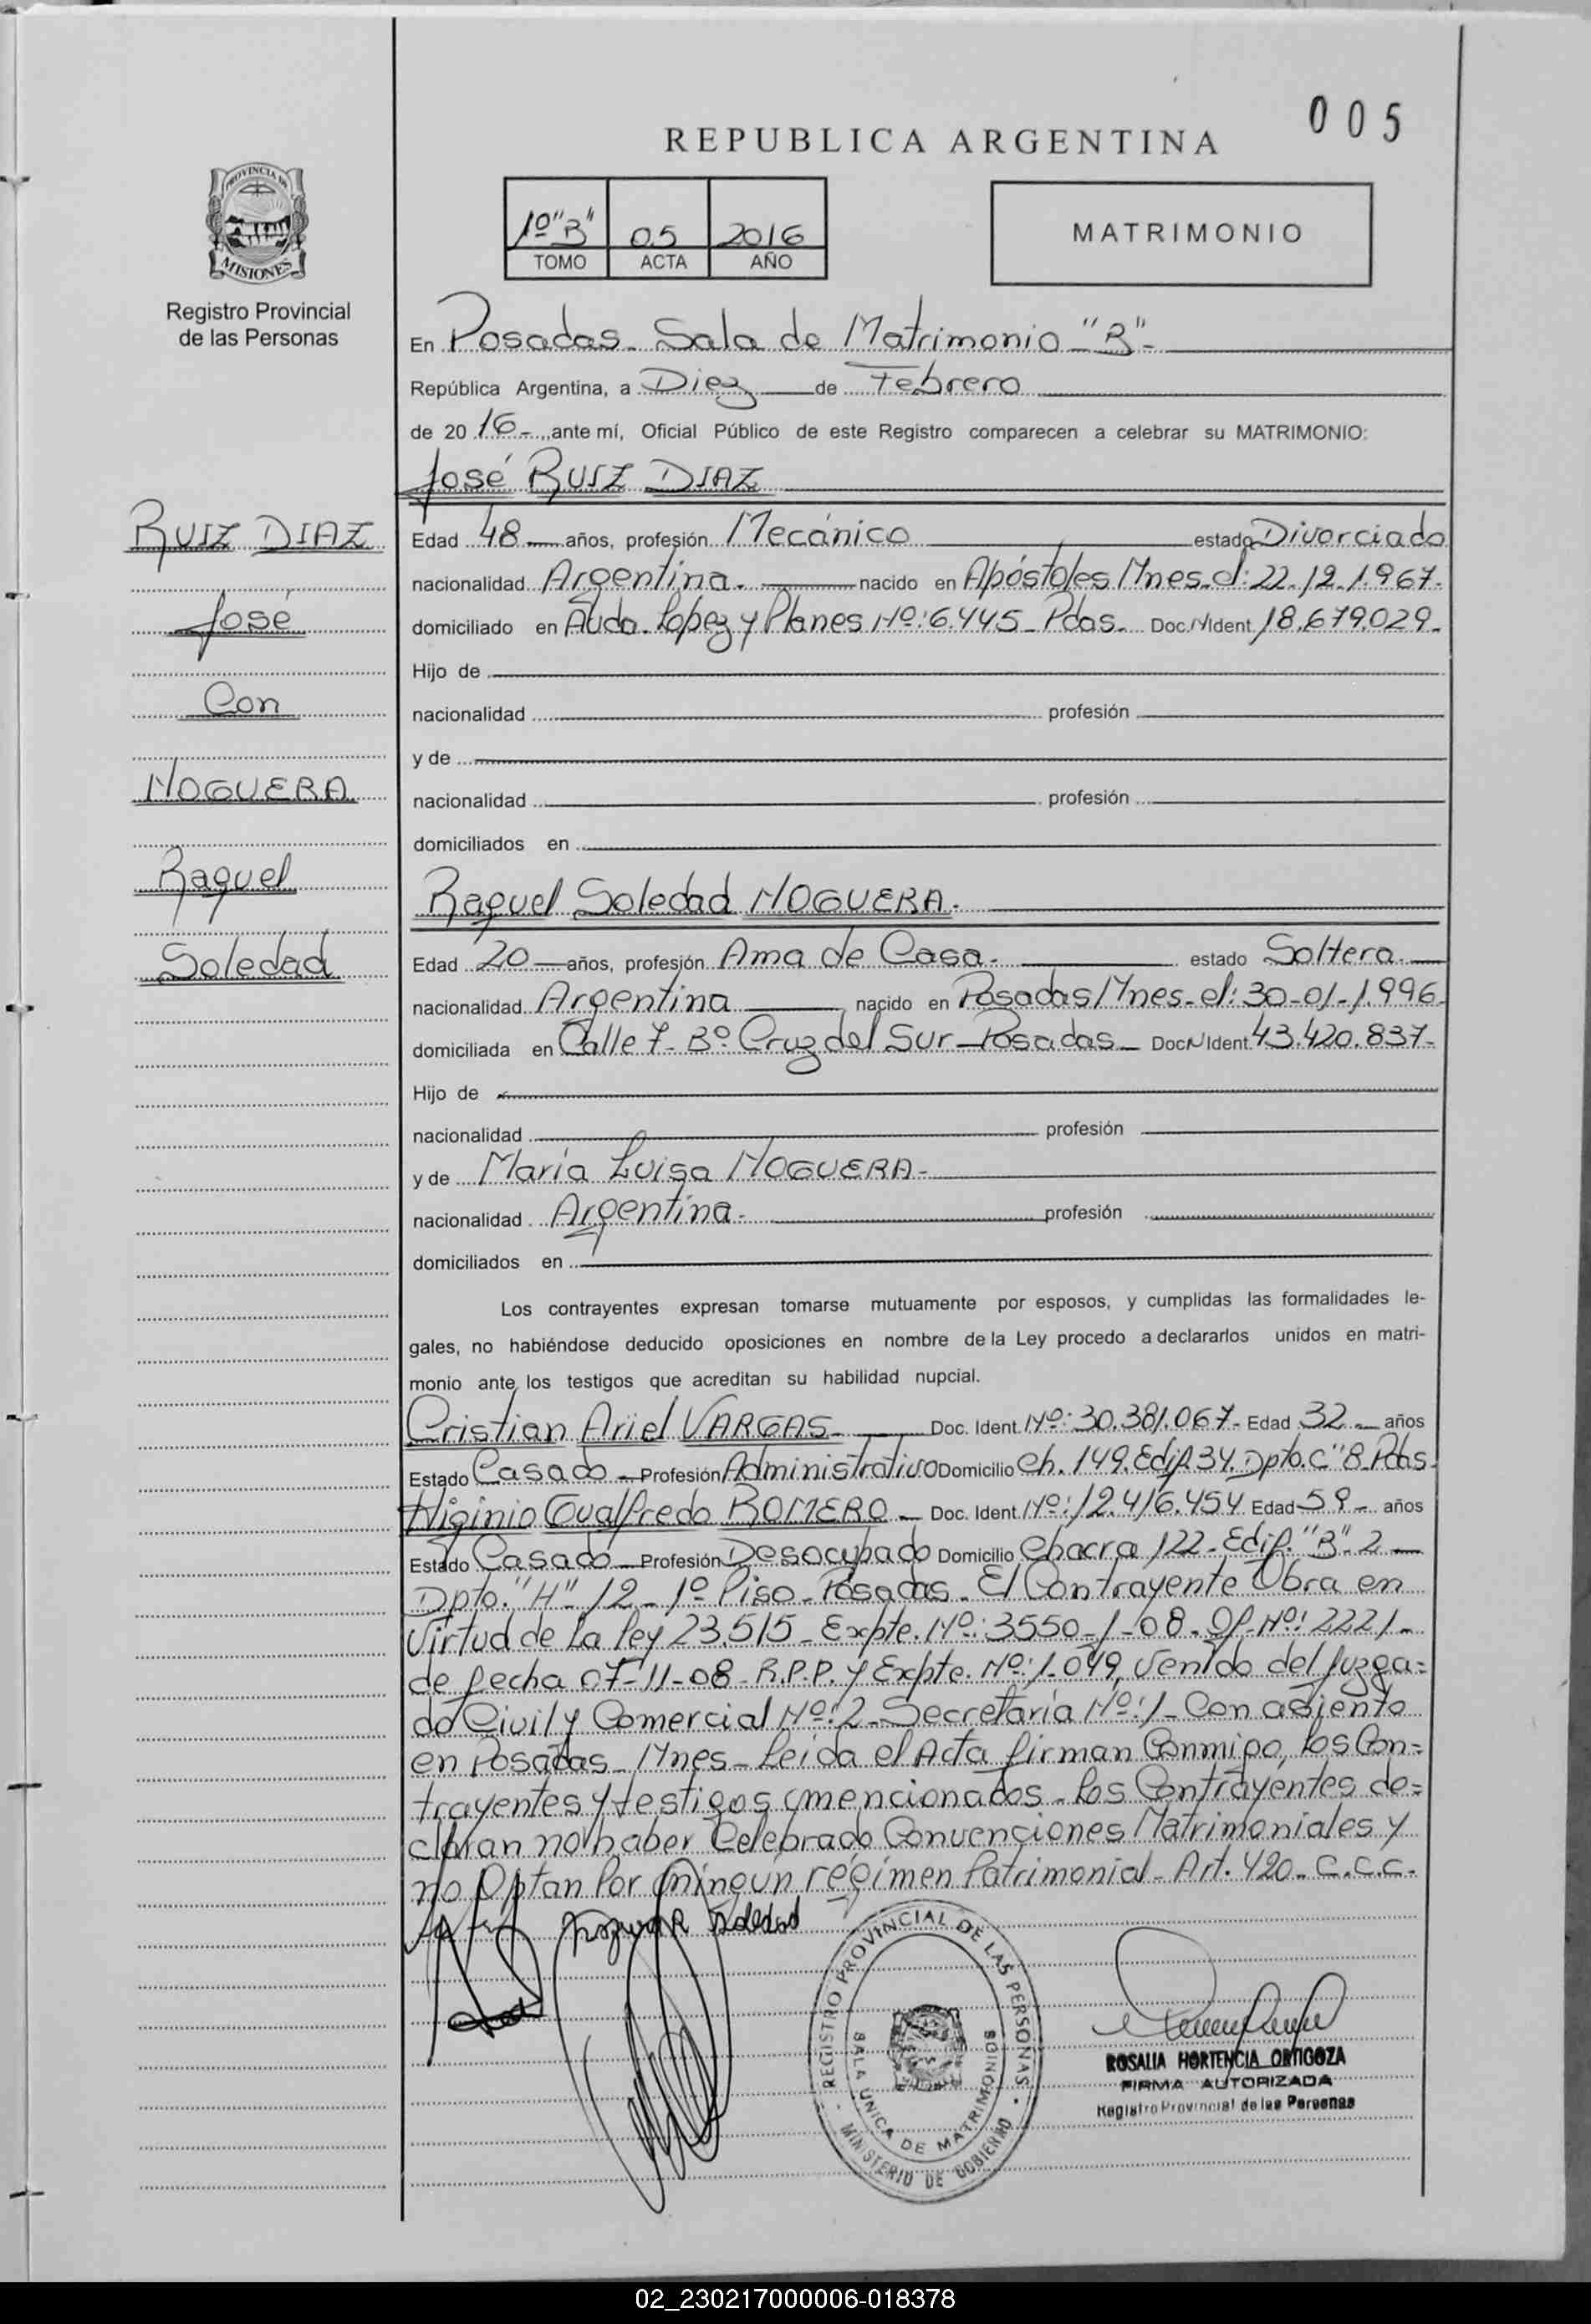 005
REPUBLICA ARGENTINA
1º "B" 05 2016
TOMO ACTA AÑO
MATRIMONIO
PROVINCIA DE
MISIONES
Registro Provincial
de las Personas
En Posadas - Sala de Matrimonio - "B" -
República Argentina, a Diez de Febrero
de 20 16 - ante mí, Oficial Público de este Registro comparecen a celebrar su MATRIMONIO:
José RUIZ DIAZ
RUIZ DIAZ
José
Con
NOGUERA
Raquel
Soledad
Edad 48 años, profesión Mecánico estado Divorciado
nacionalidad Argentina. nacido en Apóstoles Mnes. el: 22-12-1.967.
domiciliado en Avda. López y Planes Nº: 6.445 - Pdas. Doc. N Ident 18.679.029.
Hijo de
nacionalidad profesión
y de
nacionalidad profesión
domiciliados en
Raquel Soledad NOGUERA.
Edad 20 años, profesión Ama de Casa. estado Soltera.
nacionalidad Argentina nacido en Posadas Mnes. el: 30-01-1.996.
domiciliada en Calle 7 - Bº Cruz del Sur - Posadas - Doc N Ident. 43.420.837-
Hijo de
nacionalidad profesión
y de María Luisa NOGUERA -
nacionalidad Argentina. profesión
domiciliados en
Los contrayentes expresan tomarse mutuamente por esposos, y cumplidas las formalidades le-
gales, no habiéndose deducido oposiciones en nombre de la Ley procedo a declararlos unidos en matri-
monio ante los testigos que acreditan su habilidad nupcial.
Cristian Ariel VARGAS - Doc. Ident. Nº: 30.381.067 - Edad 32 - años
Estado Casado - Profesión Administrativo Domicilio Ch. 149. Edif. 34. Dpto. C" 8. Pdas.
Higinio Gualfredo ROMERO - Doc. Ident. Nº: 12.416.454 Edad 59 - años
Estado Casado - Profesión Desocupado Domicilio Chacra 122 - Edif. "B" - 2 -
Dpto. "H" 12 - 1º Piso - Posadas - El Contrayente Obra en
Virtud de la Ley 23.515 - Expte. Nº: 3550-1-08. Of. Nº: 2221 -
de fecha 07-11-08 - R.P.P. y Expte. Nº: 1.049, Venido del Juzga=
do Civil y Comercial Nº: 2 - Secretaría Nº: 1 - Con asiento
en Posadas - Mnes - Leida el Acta firman Conmigo, los Con=
trayentes y testigos mencionados - los Contrayentes de=
claran no haber Celebrado Convenciones Matrimoniales y
no Optan Por ningún régimen Patrimonial - Art. 420 - C.C.C.
Noguera Soledad
REGISTRO PROVINCIAL DE LAS PERSONAS
SALA UNICA DE MATRIMONIOS
MINISTERIO DE GOBIERNO
ROSALIA HORTENCIA ORTIGOZA
FIRMA AUTORIZADA
Registro Provincial de las Personas
02_230217000006-018378